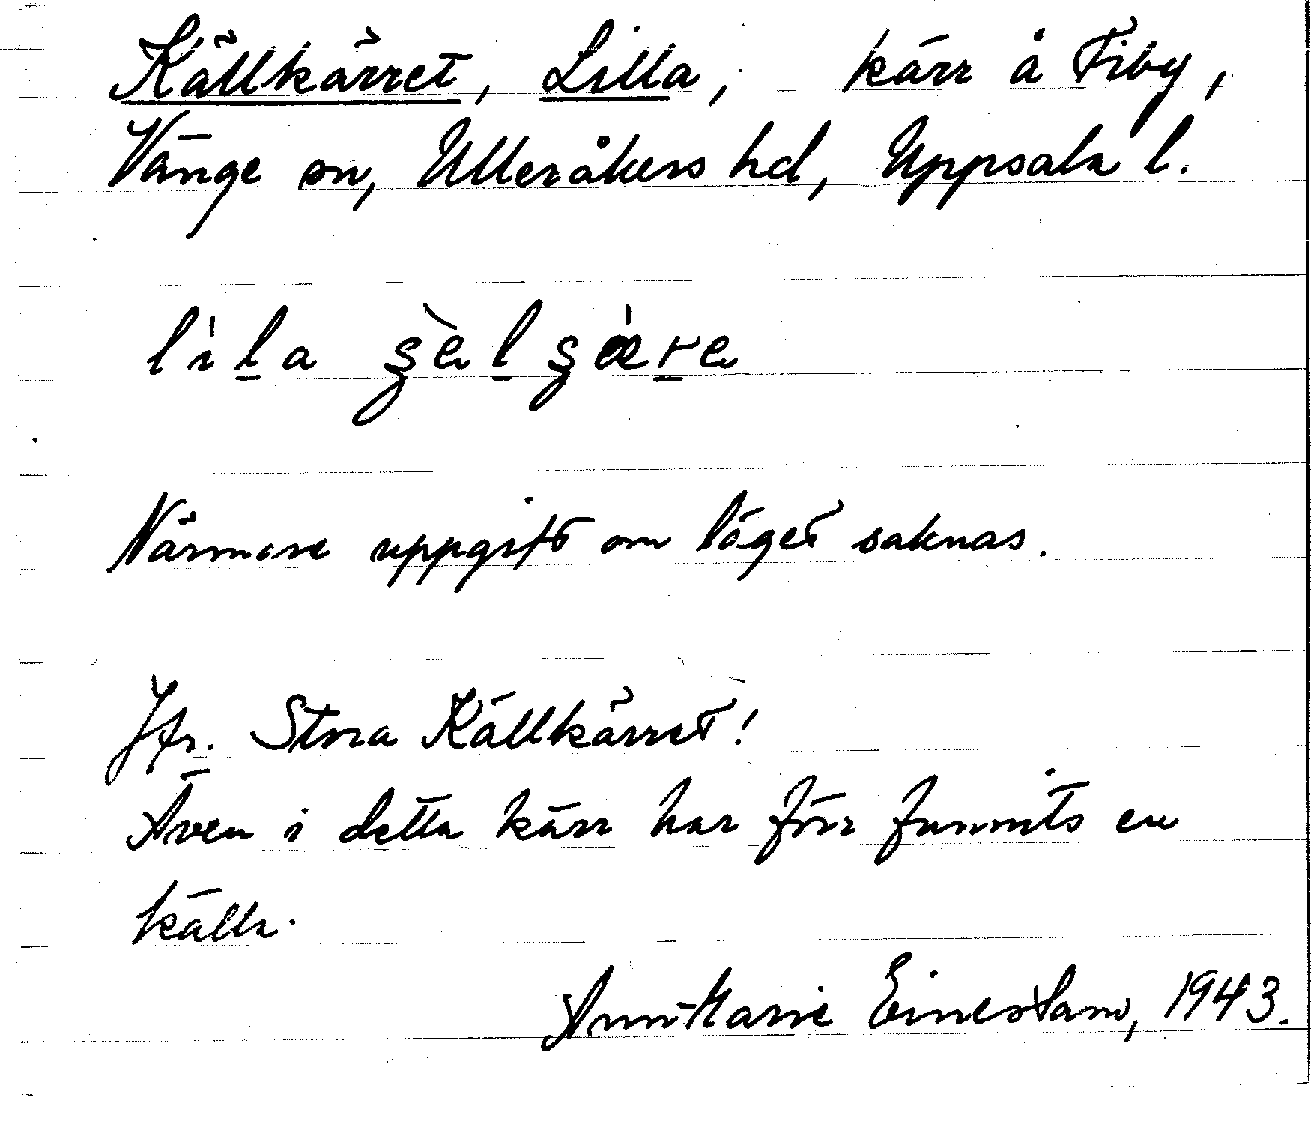 Källkärret, Lilla, kärr å Fiby,
Vänge sn, Ulleråkers hd, Uppsala l.
Närmare uppgift om läget saknas.
Jfr. Stora Källkärret!
Även i detta kärr har förr funnits en
källa.
Ann-Marie 1943.